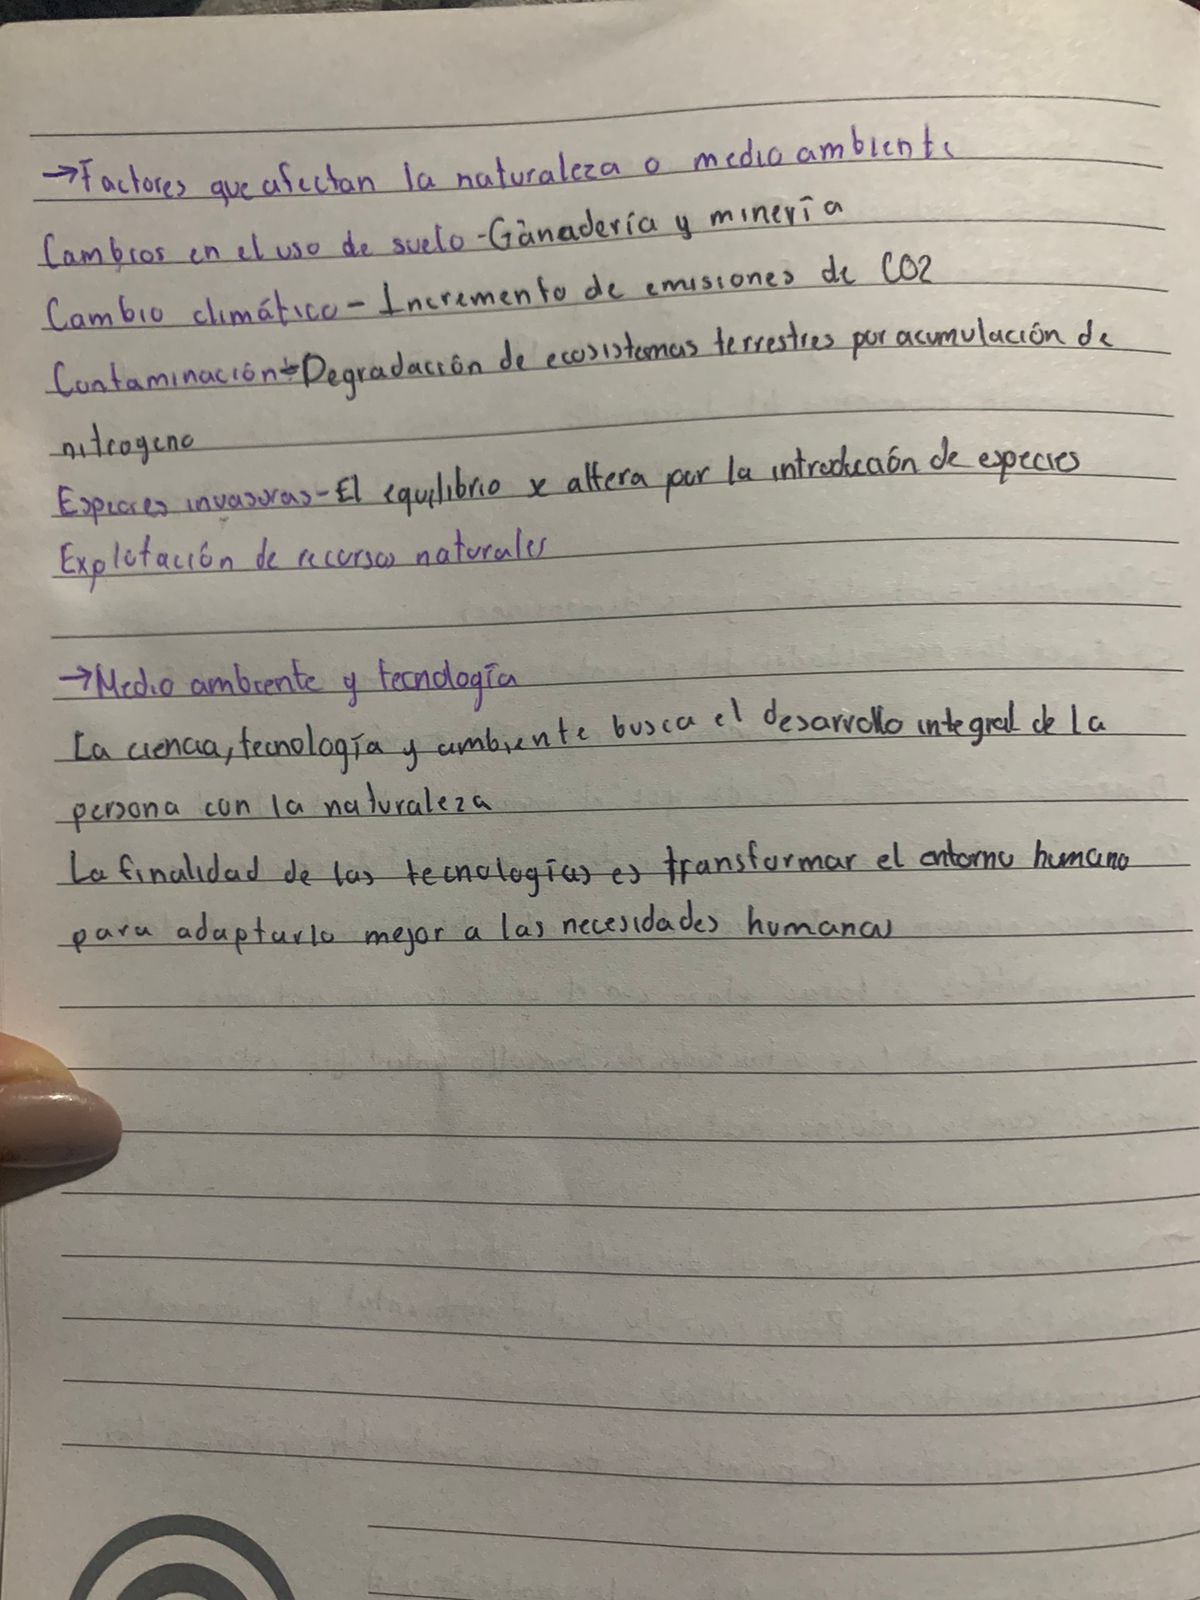 →Factores que afectan la naturaleza o medio ambiente
Cambios en el uso de suelo - Ganadería y minería
Cambio climático - Incremento de emisiones de CO2
Contaminación - Degradación de ecosistemas terrestres por acumulación de
nitrogeno
Especies invasoras - El equilibrio se altera por la introducción de especies
Explotación de recursos naturales
→Medio ambiente y tecnología
La ciencia, tecnología y ambiente busca el desarrollo integral de la
persona con la naturaleza
La finalidad de las tecnologías es transformar el entorno humano
para adaptarlo mejor a las necesidades humanas